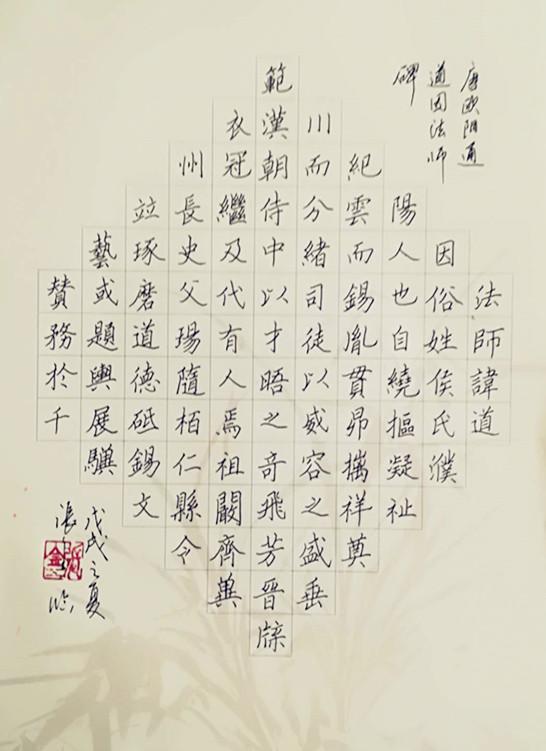 唐欧阳通
道因法师
碑
法師諱道
因俗姓侯氏濮
陽人也自繞摳凝祉
紀雲而錫胤貫昴摛祥奠
川而分緒司徒以威容之盛垂
範漢朝侍中以才晤之奇飛芳晉牒
衣冠繼及代有人焉祖闞齊冀
州長史父瑒隨柏仁縣令
竝琢磨道德砥錫文
藝或題輿展驥
贊務於千
戊戌之夏
張 临